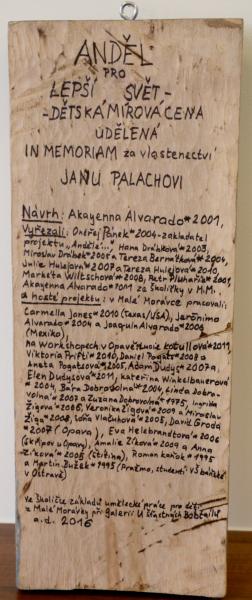 ANDĚL
PRO
LEPŠÍ SVĚT -
- DĚTSKÁ MÍROVÁ CENA
UDĚLENÁ
IN MEMORIAM za vlastenectví
JANU PALACHOVI
Návrh: Akayenna Alvarado*2001,
Vyřezali: Ondřej Pánek*2004-zakladatel
projektu „Anděle...", Hana Drábková*2003,
Miroslav Drábek*2005 a Tereza *2004,
Julie Hulejová*2007 a Tereza Hulejová*2010,
Markéta Wiltschová*2008, Petr *2001,
Akayenna Alvarado*2001 za školičky v M.M.
a hosté projektu: v Malé Morávce pracovali:
Carmella Jones*2010 (Texas/USA), Jerónimo
Alvarado*2004 a Joaquín Alvarado*2006
(Mexiko),
na workshopech v Opavě: Lucie Kotullová*2011,
Viktoria Prifti*2010, Daniel Pogats*2008 a
Aneta Pogatsová*2005, Adam Dudys*2007 a
Elen Dudysová*2011, Kateřina Winkelbauerová
*2004, Bára Dobrovolná*2004, Linda Dobro-
volná*2007 a Zuzana Dobrovolná*1975, Ingrid
Žigová*2006, Veronika Žigová*2009 a Miroslav
Žiga*2008, Sofia Vlachutová*2005, David Groda
*2007 (Opava), Eva Helebrandtová*2006
(Skřipov u Opavy), Amálie Zíková*2009 a Anna
Zíková*2005 (Štítina), Roman Koňok*1995
a Martin Bužek*1995 (Pražmo, studenti VŠ báňské
v Ostravě)
ve školičce základů umělecké práce pro děti
z Malé Morávky při galerii U šťastných Bobtailů
a.d. 2016